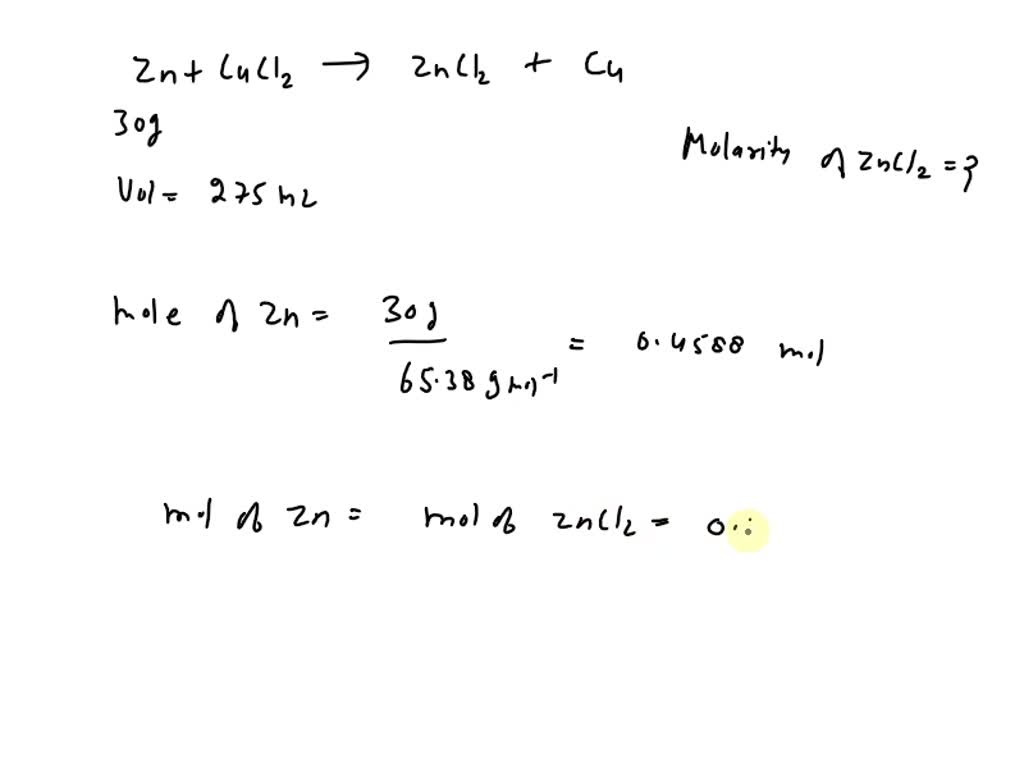 Zn + CuCl2 → ZnCl2 + Cu
30g
Molarity of ZnCl2 = ?
Vol = 275 mL
mole of Zn = 30g / 65.38 g mol-1 = 0.4588 mol
mol of Zn = mol of ZnCl2 = 0.